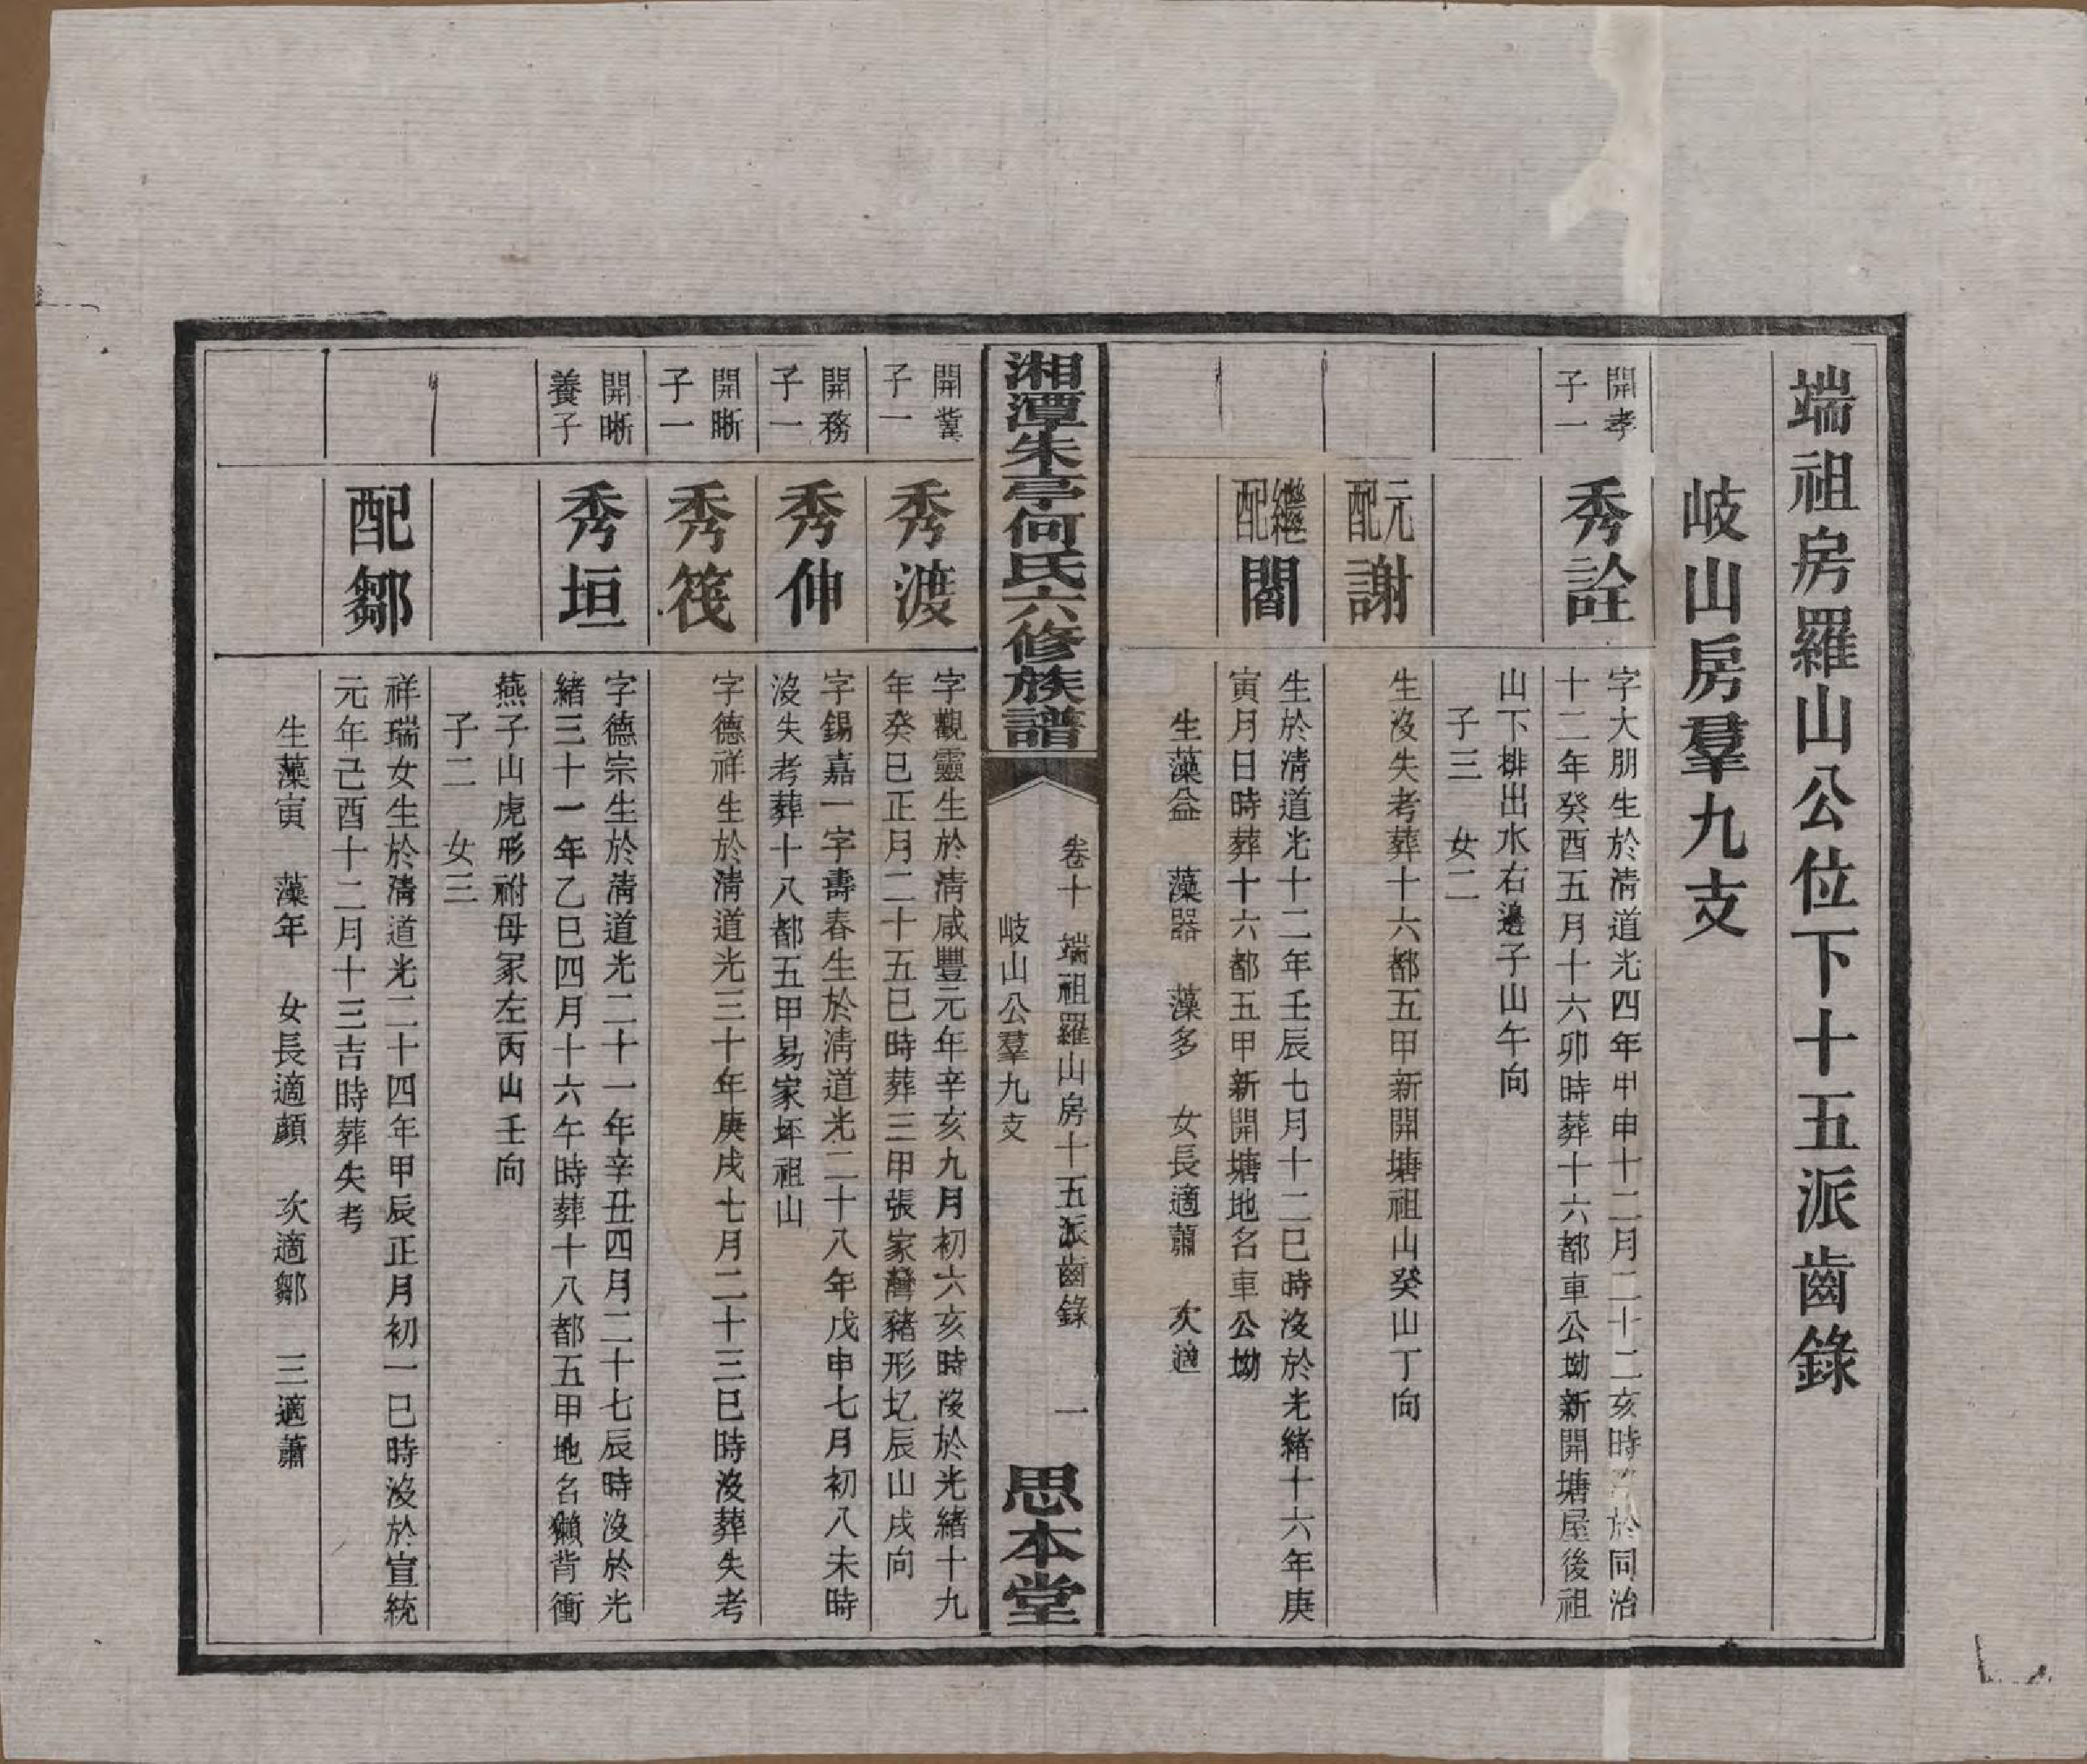 端祖房羅山公位下十五派齒錄
岐山房羣九支
開孝
子一
秀詮
字大朋生於清道光四年甲申十二月二十二亥時於同治
十二年癸酉五月十六卯時葬十六都車公坳新開塘屋後祖
山下排出水右邊子山午向
子三 女二
元配謝
生沒失考葬十六都五甲新開塘祖山癸山丁向
繼配閻
生於清道光十二年壬辰七月十二巳時沒於光緒十六年庚
寅月日時葬十六都五甲新開塘地名車公坳
生藻益 藻器 藻多 女長適蕭 次適
湘潭朱亭何氏六修族譜
卷十 端祖羅山房十五派齒錄 一
岐山公羣九支
思本堂
開甃
子一
秀渡
字觀靈生於清咸豐元年辛亥九月初六亥時沒於光緒十九
年癸巳正月二十五巳時葬三甲張家灣豬形圠辰山戌向
開務
子一
秀伸
字錫嘉一字壽春生於清道光二十八年戊申七月初八未時
沒失考葬十八都五甲易家坏祖山
開晰
子一
秀筏
字德祥生於清道光三十年庚戌七月二十三巳時沒葬失考
開晰
養子
秀垣
字德宗生於清道光二十一年辛丑四月二十七辰時沒於光
緒三十一年乙巳四月十六午時葬十八都五甲地名獺背衝
燕子山虎形祔母冢左丙山壬向
子二 女三
配鄒
祥瑞女生於清道光二十四年甲辰正月初一巳時沒於宣統
元年己酉十二月十三吉時葬失考
生藻寅 藻年 女長適顔 次適鄒 三適蕭